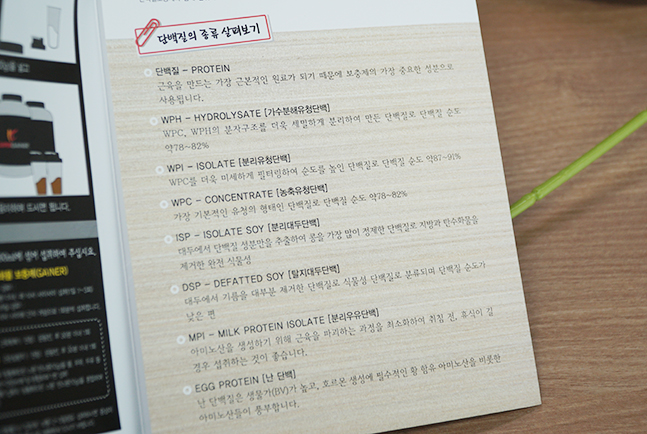 단백질의 종류 살펴보기
단백질 - PROTEIN
근육을 만드는 가장 근본적인 원료가 되기 때문에 보충제의 가장 중요한 성분으로
사용됩니다.
WPH - HYDROLYSATE [가수분해유청단백]
WPC, WPH의 분자구조를 더욱 세밀하게 분리하여 만든 단백질로 단백질 순도
약78~82%
WPI - ISOLATE [분리유청단백]
WPC를 더욱 미세하게 필터링하여 순도를 높인 단백질로 단백질 순도 약87~91%
WPC - CONCENTRATE [농축유청단백]
가장 기본적인 유청의 형태인 단백질로 단백질 순도 약78~82%
ISP - ISOLATE SOY [분리대두단백]
대두에서 단백질 성분만을 추출하여 콩을 가장 많이 정제한 단백질로 지방과 탄수화물을
제거한 완전 식물성
DSP - DEFATTED SOY [탈지대두단백]
대두에서 기름을 대부분 제거한 단백질로 식물성 단백질로 분류되며 단백질 순도가
낮은 편
MPI - MILK PROTEIN ISOLATE [분리우유단백]
아미노산을 생성하기 위해 근육을 파괴하는 과정을 최소화하여 취침 전, 휴식이 길
경우 섭취하는 것이 좋습니다.
EGG PROTEIN [난 단백]
난 단백질은 생물가(BV)가 높고, 호르몬 생성에 필수적인 황 함유 아미노산을 비롯한
아미노산들이 풍부합니다.